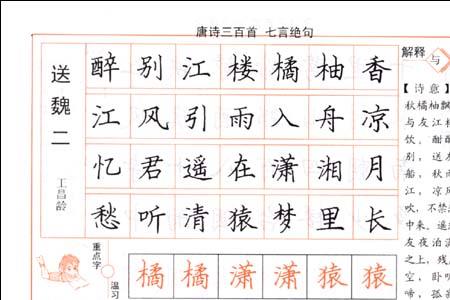 唐诗三百首 七言绝句
送魏二
王昌龄
醉别江楼橘柚香
江风引雨入舟凉
忆君遥在潇湘月
愁听清猿梦里长
重点字
温习
橘橘潇潇猿猿
解释与
【诗意
秋橘柚飘
与友江楼
饮,酣醉
别,送友
船,秋
江,凉风
吹,不禁
中来。遥
友夜泊潇
之上,残
空,卧
啼,孤